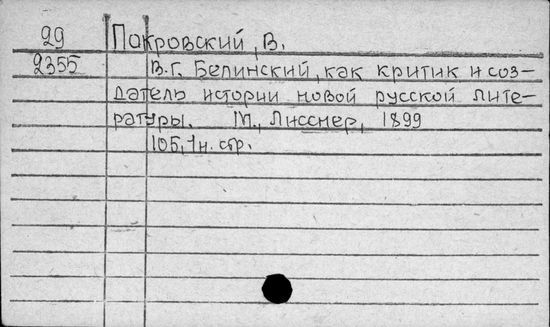 29 Покровский, В.
2355 В.Г. Белинский, как критик и соз-
датель истории новой русской лите-
ратуры. М., Лисснер, 1899
105, 1 н. стр.